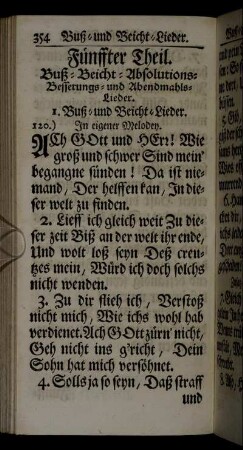 354 Buß- und Beicht-Lieder.
Fünffter Theil.
Buß-Beicht-Absolutions-
Besserungs- und Abendmahls-
Lieder.
1. Buß- und Beicht-Lieder.
120.) In eigener Melodey.
ACh GOtt und HErr! Wie
groß und schwer Sind mein'
begangne sünden! Da ist nie-
mand, Der helffen kan, In die-
ser welt zu finden.
2. Lieff ich gleich weit Zu die-
ser zeit Biß an der welt ihr ende,
Und wolt loß seyn Deß creu-
tzes mein, Würd ich doch solchs
nicht wenden.
3. Zu dir flieh ich, Verstoß
nicht mich, Wie ichs wohl hab
verdienet. Ach GOtt zürn' nicht,
Geh nicht ins g'richt, Dein
Sohn hat mich versöhnet.
4. Solls ja so seyn, Daß straff
und